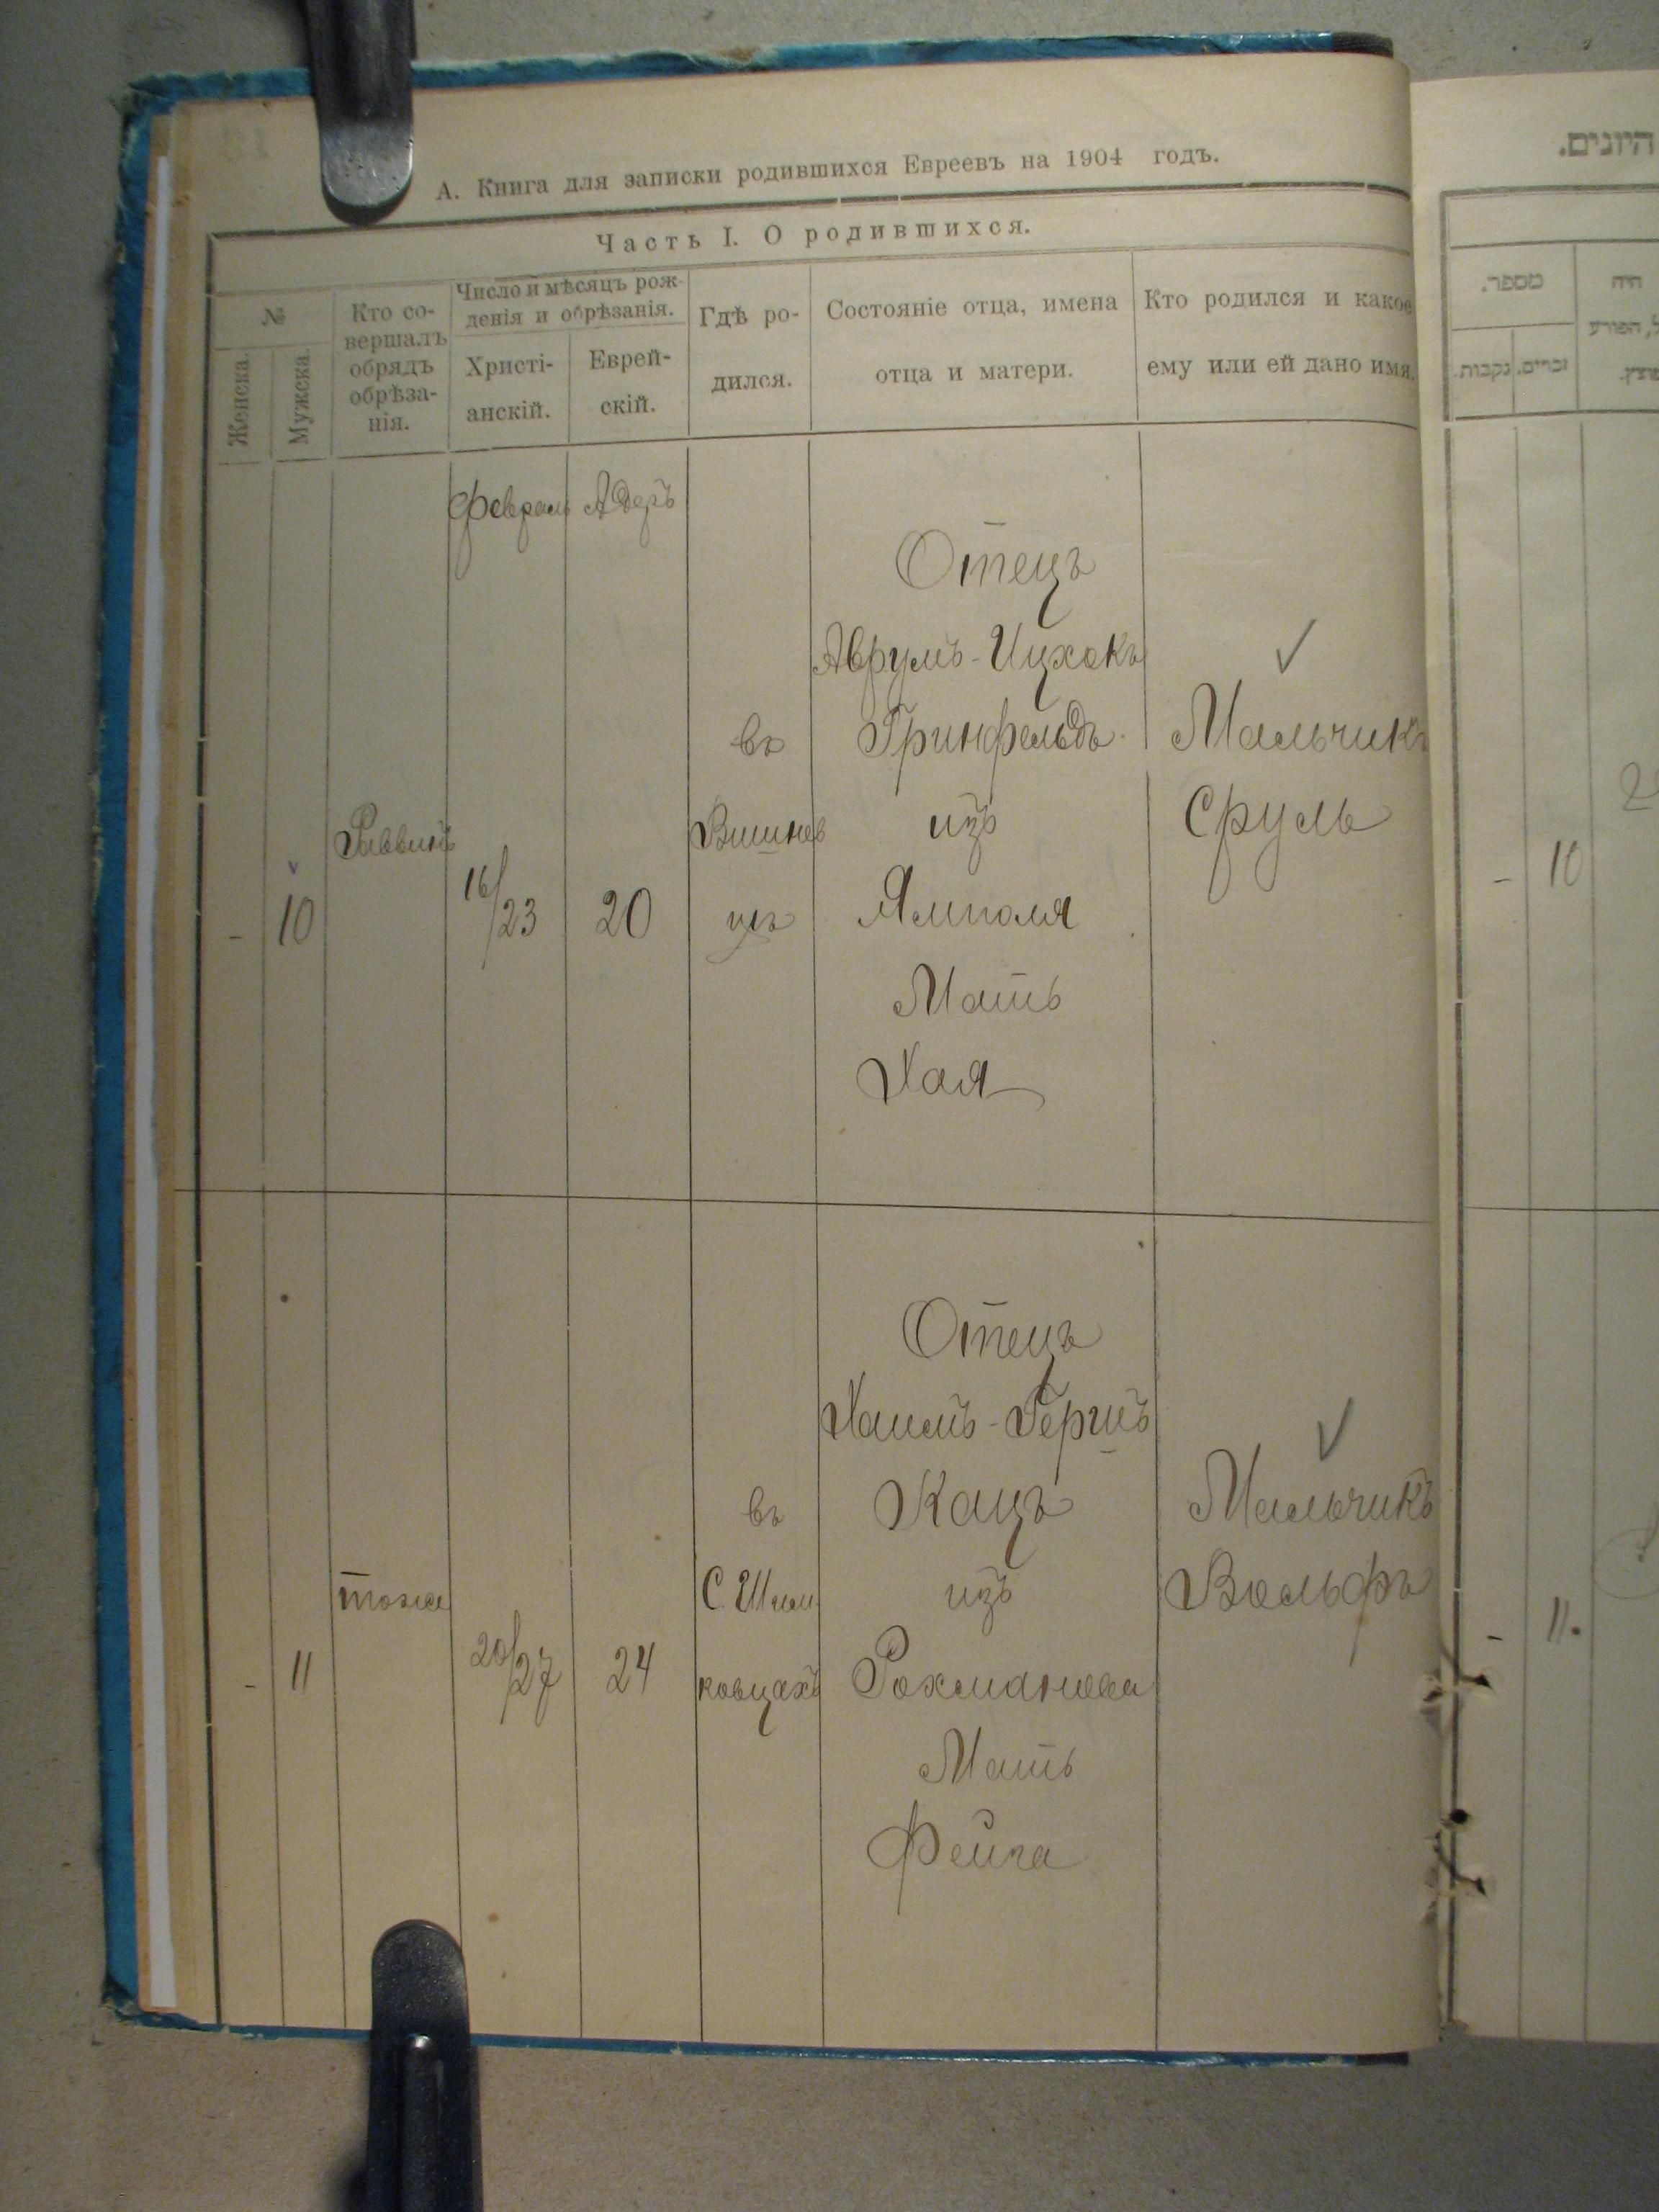 А. Книга для записки родившихся Евреевъ на 1904 годъ.
Часть I. О родившихся.
№
Женска.
Мужска.
Кто со-
вершалъ
обрядъ
обрѣза-
нія.
Число и мѣсяцъ рож-
денія и обрѣзанія.
Христі-
анскій.
Еврей-
скій.
Гдѣ ро-
дился.
Состояніе отца, имена
отца и матери.
Кто родился и какое
ему или ей дано имя.
Февраль
Адеръ
- 10
Раввинъ
16/23
20
въ
Вишнев
цѣ
Отецъ
Аврумъ-Ицхокъ
Гринфельдъ.
изъ
Ямполя
Мать
Хая
Мальчикъ
Сруль
- 11
тоже
20/27
24
въ
С. Шим
ковцахъ
Отецъ
Хаимъ-Гершъ
Кацъ
изъ
Рохманова
Мать
Фейга
Мальчикъ
Вольфъ
היונים.
מספר.
זכרים.
נקבות.
היה
- 10
- 11.